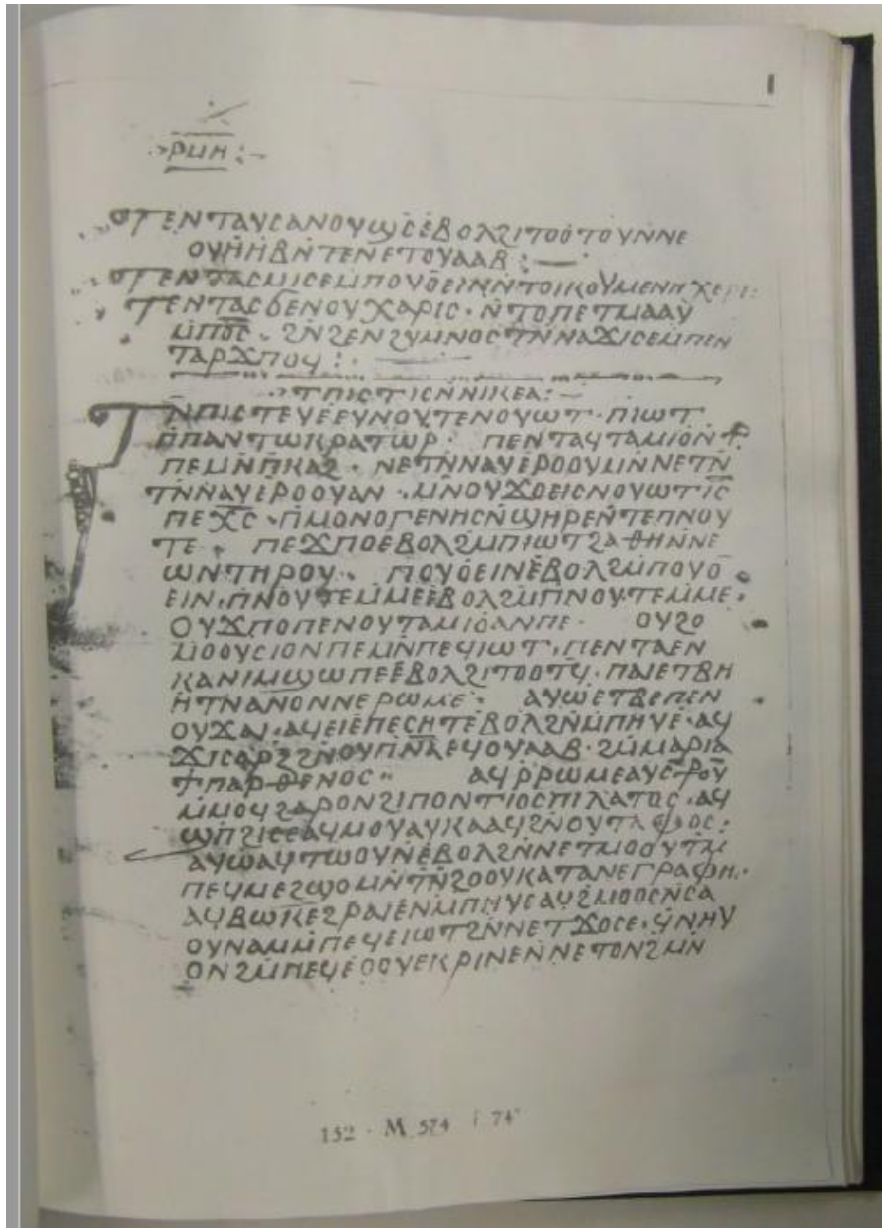 ⲣⲙⲏ
ⲧⲉⲛⲧⲁⲩⲥⲁⲛⲟⲩϣⲥ ⲉⲃⲟⲗϩⲓⲧⲟⲟⲧⲟⲩⲛⲛⲉ
ⲟⲩⲏⲏⲃⲛⲧⲉⲛⲉⲧⲟⲩⲁⲁⲃ:
ⲧⲉⲛⲧⲁⲥⲙⲓⲥⲉⲙⲡⲟⲩⲟⲉⲓⲛⲛⲧⲟⲓⲕⲟⲩⲙⲉⲛⲏ ⲭⲉⲣⲉ
ⲧⲉⲛⲧⲁⲥϭⲉⲛⲟⲩⲭⲁⲣⲓⲥ· ⲛⲧⲟⲡⲉⲧⲙⲁⲁⲩ
ⲙⲡⲟ̅ⲥ̅· ϩⲛϩⲉⲛϩⲩⲙⲛⲟⲥⲧⲛⲛⲁϫⲓⲥⲉⲙⲡⲉⲛ
ⲧⲁⲣϫⲡⲟϥ:
ⲧⲡⲓⲥⲧⲓⲥⲛⲛⲓⲕⲉⲁ:
ⲧⲛⲡⲓⲥⲧⲉⲩⲉⲉⲩⲛⲟⲩⲧⲉⲛⲟⲩⲱⲧ· ⲡⲓⲱⲧ
ⲡⲡⲁⲛⲧⲱⲕⲣⲁⲧⲱⲣ· ⲡⲉⲛⲧⲁϥⲧⲁⲙⲓⲟⲛⲧ
ⲡⲉⲙⲛⲡⲕⲁϩ· ⲛⲉⲧⲛⲛⲁⲩⲉⲣⲟⲟⲩⲙⲛⲛⲉⲧⲛ
ⲧⲛⲛⲁⲩⲉⲣⲟⲟⲩⲁⲛ· ⲙⲛⲟⲩϫⲟⲉⲓⲥⲛⲟⲩⲱⲧⲓ̅ⲥ̅
ⲡⲉⲭ̅ⲥ̅· ⲡⲙⲟⲛⲟⲅⲉⲛⲏⲥⲛϣⲏⲣⲉⲛⲧⲉⲡⲛⲟⲩ
ⲧⲉ· ⲡⲉϫⲡⲟⲉⲃⲟⲗϩⲙⲡⲓⲱⲧϩⲁⲑⲏⲛⲛⲉ
ⲱⲛⲧⲏⲣⲟⲩ· ⲡⲟⲩⲟⲉⲓⲛⲉⲃⲟⲗϩⲙⲡⲟⲩⲟ
ⲉⲓⲛ· ⲡⲛⲟⲩⲧⲉⲙⲙⲉⲉⲃⲟⲗϩⲙⲡⲛⲟⲩⲧⲉⲙⲙⲉ·
ⲟⲩϫⲡⲟⲡⲉⲛⲟⲩⲧⲁⲙⲓⲟⲁⲛⲡⲉ· ⲟⲩϩⲟ
ⲙⲟⲟⲩⲥⲓⲟⲛⲡⲉⲙⲛⲡⲉϥⲓⲱⲧ· ⲡⲉⲛⲧⲁⲉⲛ
ⲕⲁⲛⲓⲙϣⲱⲡⲉⲉⲃⲟⲗϩⲓⲧⲟⲟⲧϥ· ⲡⲁⲓⲉⲧⲃⲏ
ⲏⲧⲛⲁⲛⲟⲛⲛⲉⲣⲱⲙⲉ· ⲁⲩⲱⲉⲧⲃⲉⲡⲉⲛ
ⲟⲩϫⲁⲓ· ⲁϥⲉⲓⲉⲡⲉⲥⲏⲧⲉⲃⲟⲗϩⲛⲙⲡⲏⲩⲉ· ⲁϥ
ϫⲓⲥⲁⲣⲝϩⲛⲟⲩⲡ̅ⲛ̅ⲁ̅ⲉϥⲟⲩⲁⲁⲃ· ϩⲙⲙⲁⲣⲓⲁ
ⲧⲡⲁⲣⲑⲉⲛⲟⲥ· ⲁϥⲣⲣⲱⲙⲉⲁⲩⲥ⳨ⲟⲩ
ⲙⲙⲟϥϩⲁⲣⲟⲛϩⲓⲡⲟⲛⲧⲓⲟⲥⲡⲓⲗⲁⲧⲟⲥ· ⲁϥ
ϣⲡϩⲓⲥⲉⲁϥⲙⲟⲩⲁⲩⲕⲁⲁϥϩⲛⲟⲩⲧⲁⲫⲟⲥ:
ⲁⲩⲱⲁϥⲧⲱⲟⲩⲛⲉⲃⲟⲗϩⲛⲛⲉⲧⲙⲟⲟⲩⲧⲙ
ⲡⲉϥⲙⲉϩϣⲟⲙⲛⲧⲛϩⲟⲟⲩⲕⲁⲧⲁⲛⲉⲅⲣⲁⲫⲏ·
ⲁϥⲃⲱⲕⲉϩⲣⲁⲓⲉⲛⲙⲡⲏⲩⲉⲁϥϩⲙⲟⲟⲥⲛⲥⲁ
ⲟⲩⲛⲁⲙⲙⲡⲉϥⲉⲓⲱⲧϩⲛⲛⲉⲧϫⲟⲥⲉ· ϥⲛⲏⲩ
ⲟⲛϩⲙⲡⲉϥⲉⲟⲟⲩⲉⲕⲣⲓⲛⲉⲛⲛⲉⲧⲟⲛϩⲙⲛ
152 · M 574 f 74ᵛ